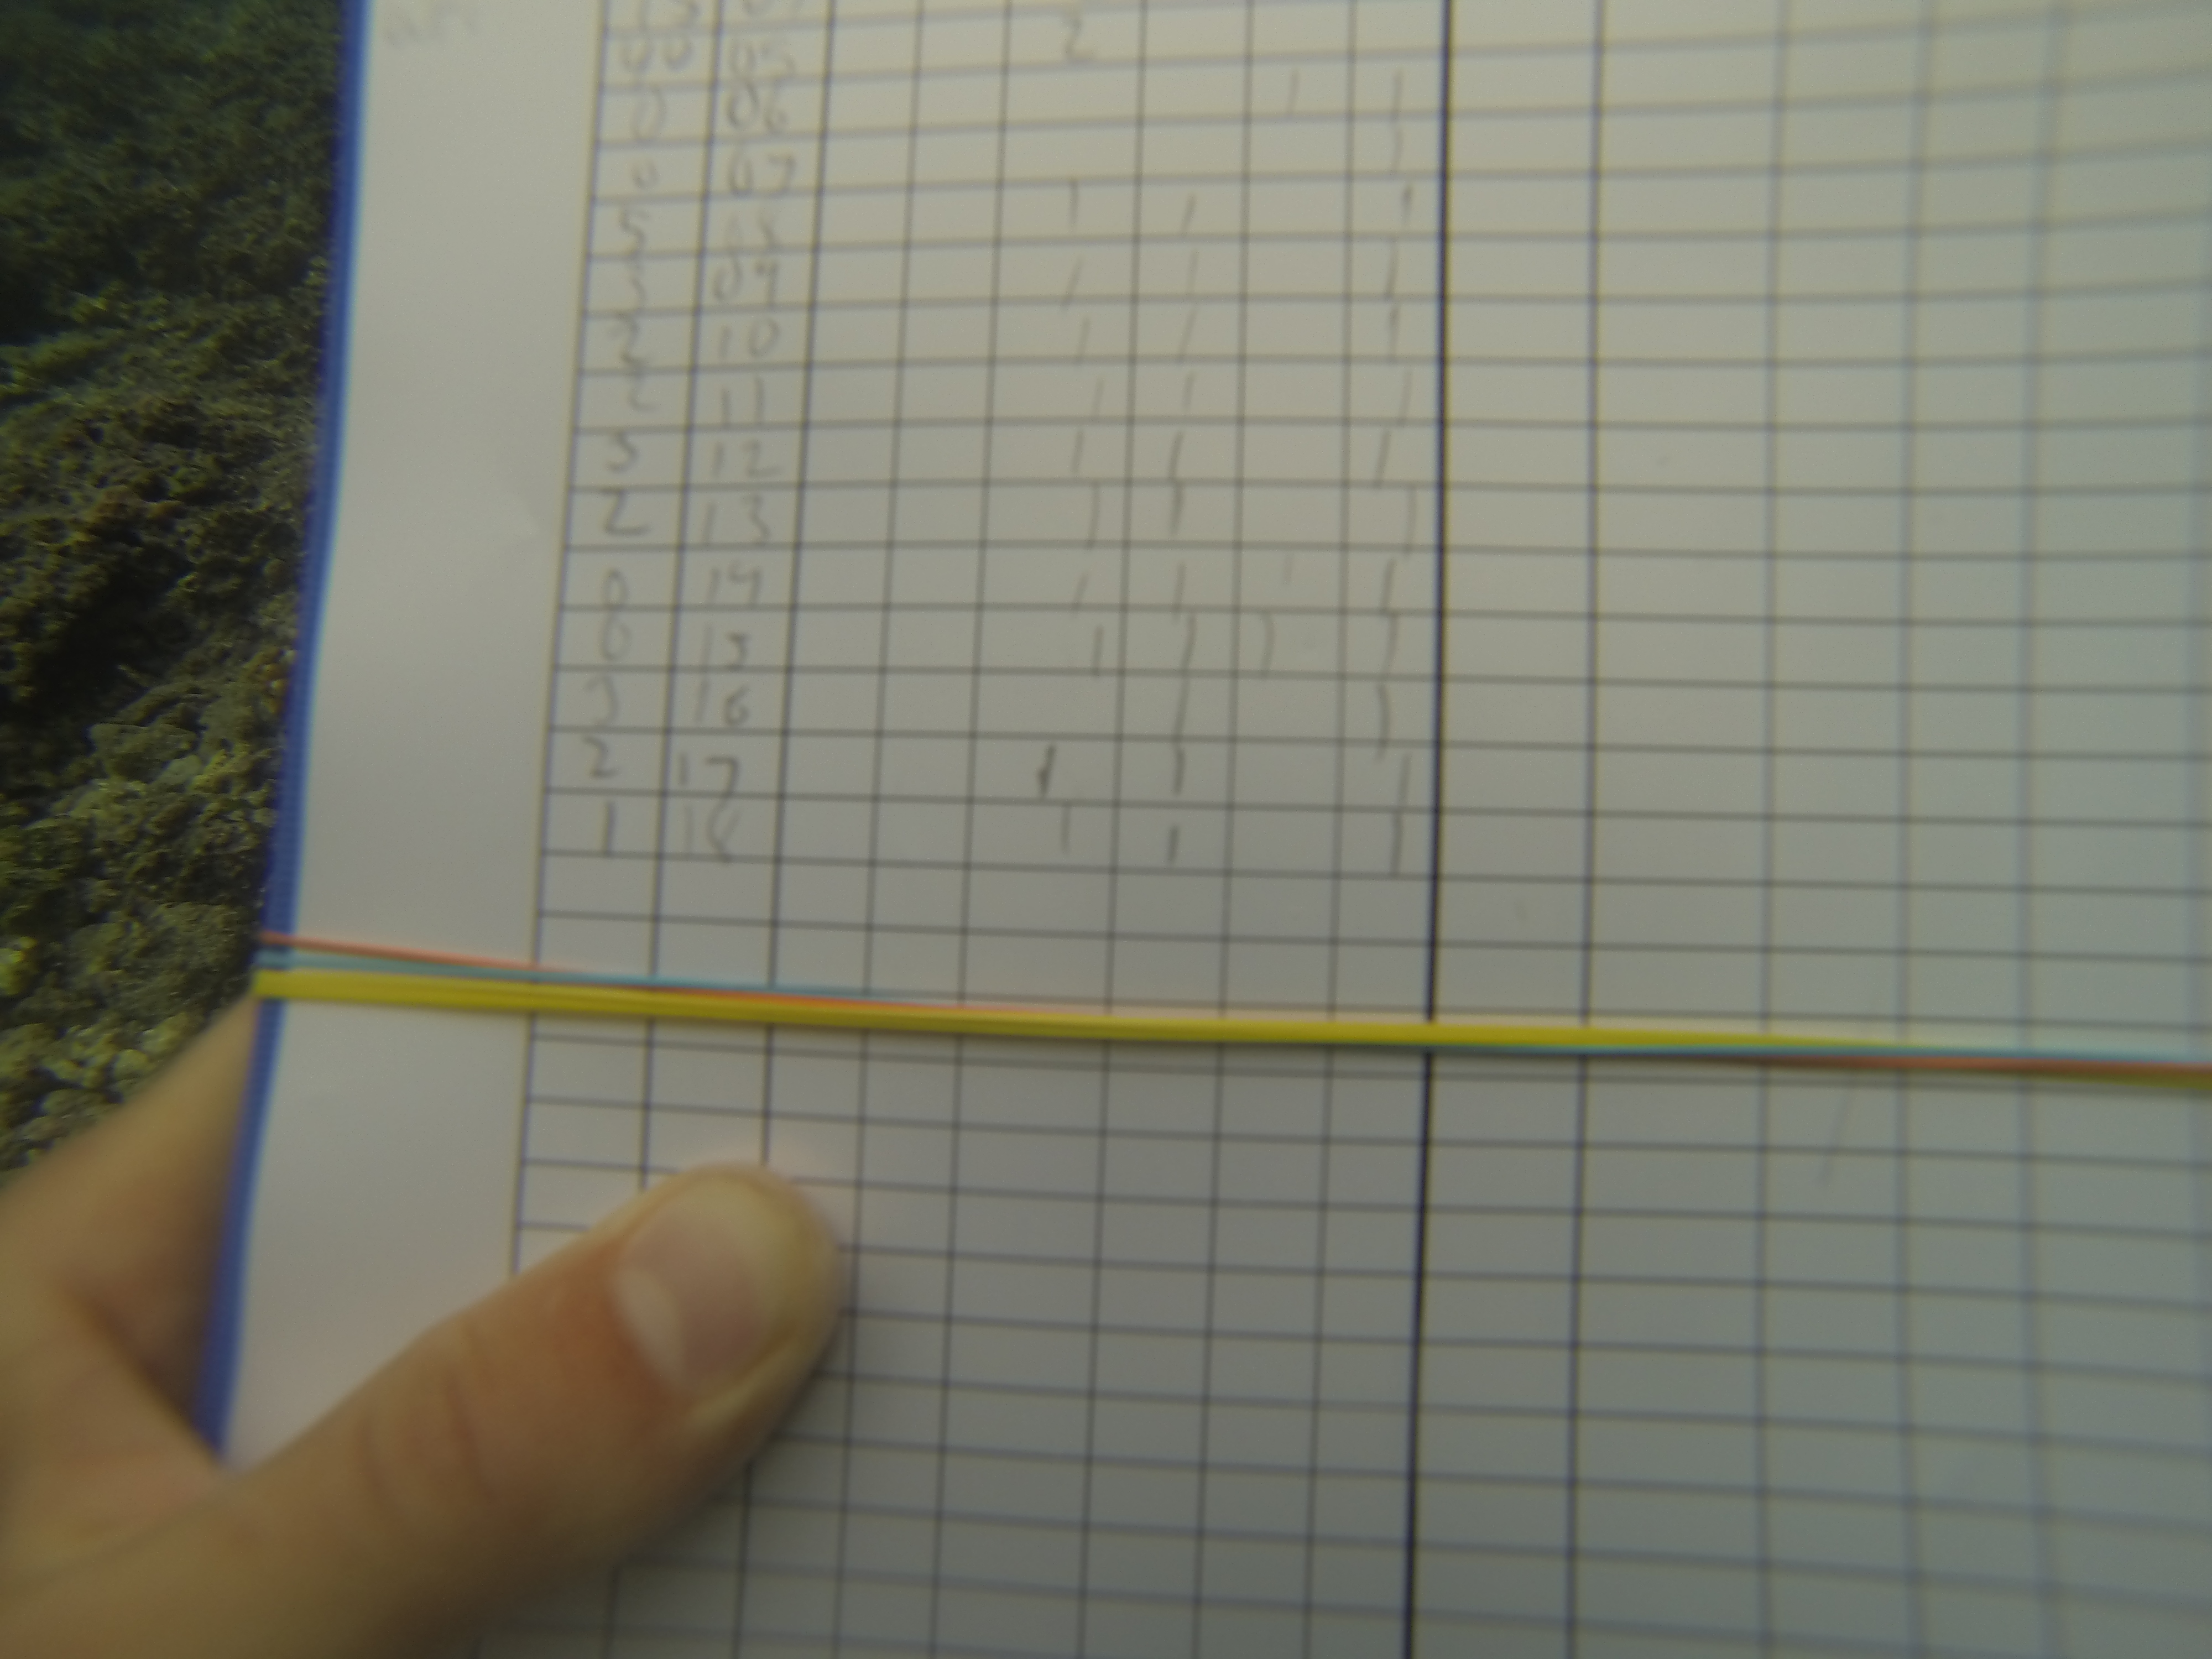 05 2
0 06 1 1
0 07 1
5 08 1 1 1
09 1 1 1
10 1 1 1
11 1 1 1
3 12 1 1 1
2 13 1 1 1
0 14 1 1 1 1
0 15 1 1 1 1
3 16 1 1
2 17 1 1 1
1 18 1 1 1